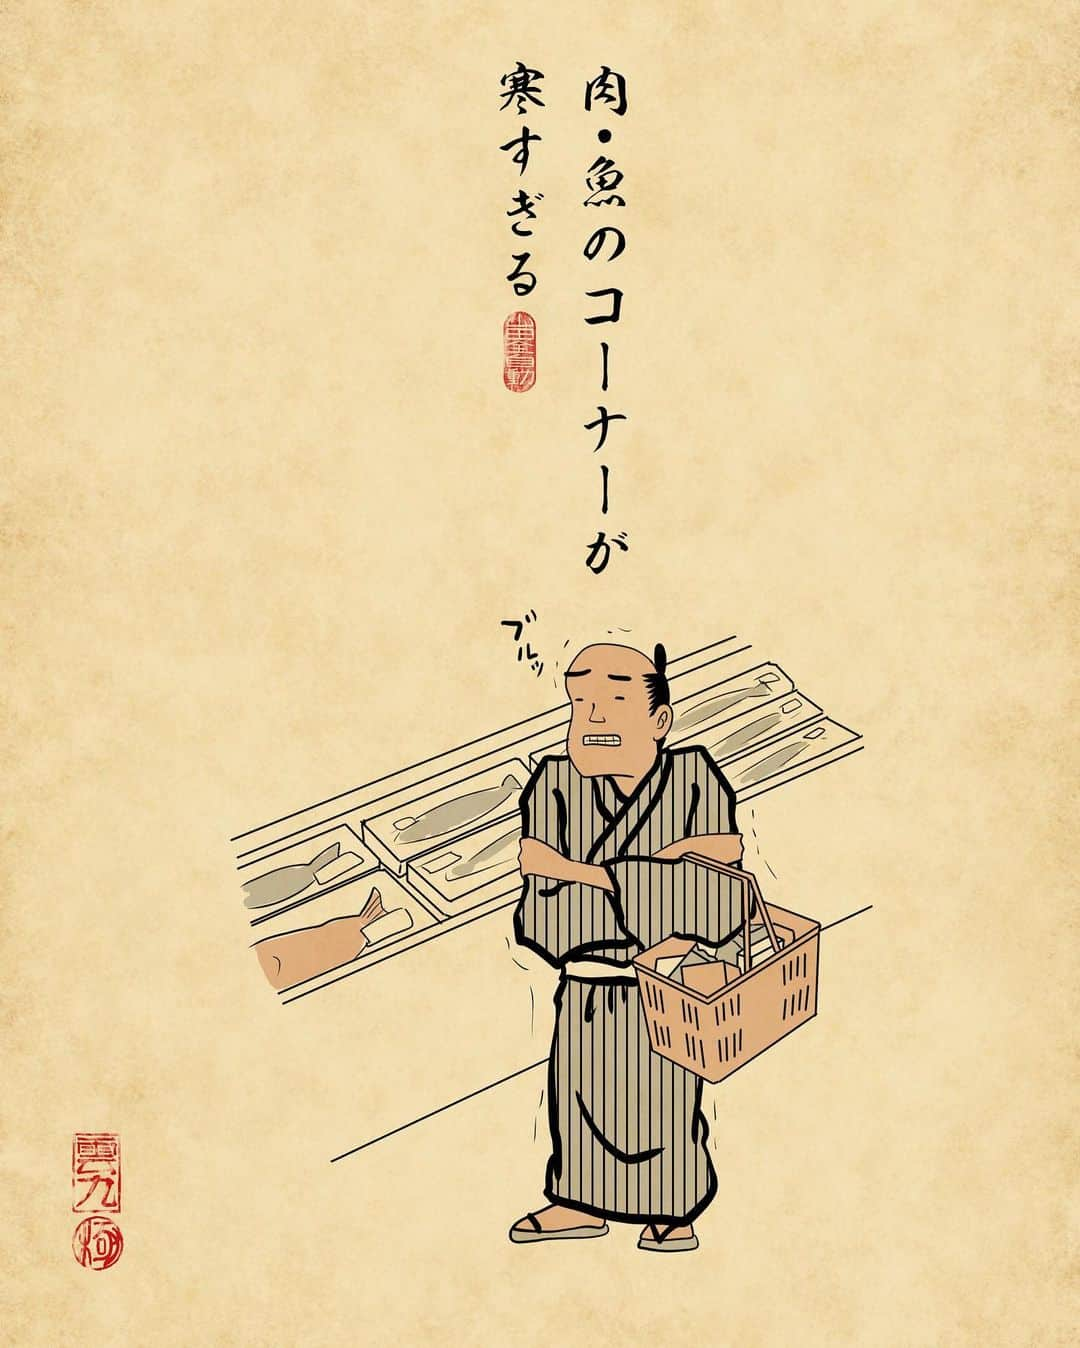 肉・魚のコーナーが
寒すぎる
ブルッ